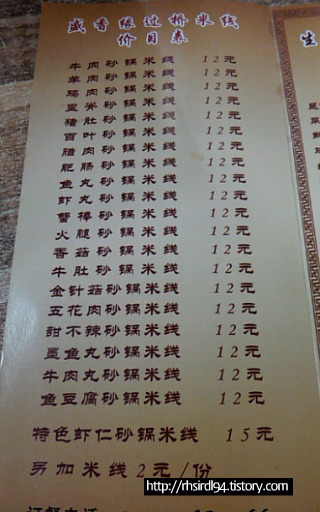 盛香缘过桥米线
价目表
牛肉砂锅米线 12元
羊肉砂锅米线 12元
鸡肉砂锅米线 12元
里脊砂锅米线 12元
猪肚砂锅米线 12元
百叶砂锅米线 12元
腊肉砂锅米线 12元
肥肠砂锅米线 12元
鱼丸砂锅米线 12元
虾丸砂锅米线 12元
蟹棒砂锅米线 12元
火腿砂锅米线 12元
香菇砂锅米线 12元
牛肚砂锅米线 12元
金针菇砂锅米线 12元
五花肉砂锅米线 12元
甜不辣砂锅米线 12元
墨鱼丸砂锅米线 12元
牛肉丸砂锅米线 12元
鱼豆腐砂锅米线 12元
特色虾仁砂锅米线 15元
另加米线2元/份
订餐电话
http://rhsirdl94.tistory.com